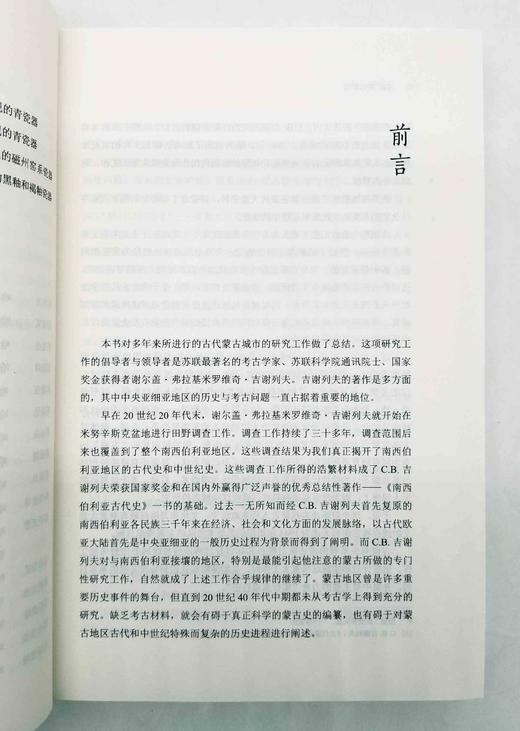 现的青瓷器
现的青瓷器
的磁州窑系瓷器
黑釉和褐釉瓷器
前言
本书对多年来所进行的古代蒙古城市的研究工作做了总结。这项研究工
作的倡导者与领导者是苏联最著名的考古学家、苏联科学院通讯院士、国家
奖金获得者谢尔盖·弗拉基米罗维奇·吉谢列夫。吉谢列夫的著作是多方面
的，其中中央亚细亚地区的历史与考古问题一直占据着重要的地位。
早在 20 世纪 20 年代末，谢尔盖·弗拉基米罗维奇·吉谢列夫就开始在
米努辛斯克盆地进行田野调查工作。调查工作持续了三十多年，调查范围后
来也覆盖到了整个南西伯利亚地区。这些调查结果为我们真正揭开了南西伯
利亚地区的古代史和中世纪史。这些调查工作所得的浩繁材料成了 C.B. 吉
谢列夫荣获国家奖金和在国内外赢得广泛声誉的优秀总结性著作——《南西
伯利亚古代史》一书的基础。过去一无所知而经 C.B. 吉谢列夫首先复原的
南西伯利亚各民族三千年来在经济、社会和文化方面的发展脉络，以古代欧
亚大陆首先是中央亚细亚的一般历史过程为背景而得到了阐明。而 C.B. 吉谢
列夫对与南西伯利亚接壤的地区，特别是最能引起他注意的蒙古所做的专门
性研究工作，自然就成了上述工作合乎规律的继续了。蒙古地区曾是许多重
要历史事件的舞台，但直到 20 世纪 40 年代中期都未从考古学上得到充分的
研究。缺乏考古材料，就会有碍于真正科学的蒙古史的编纂，也有碍于对蒙
古地区古代和中世纪特殊而复杂的历史进程进行阐述。